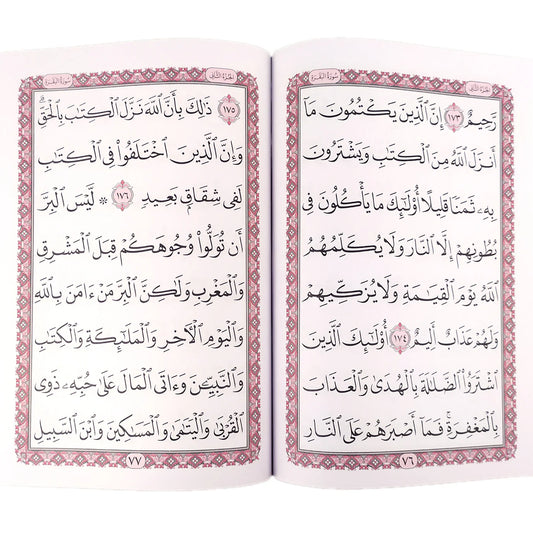 الجزء الثاني
سورة البقرة
رَّحِيمٌ ١٧٣ إِنَّ ٱلَّذِينَ يَكْتُمُونَ مَآ
أَنزَلَ ٱللَّهُ مِنَ ٱلْكِتَٰبِ وَيَشْتَرُونَ
بِهِۦ ثَمَنًا قَلِيلًا أُو۟لَٰٓئِكَ مَا يَأْكُلُونَ فِى
بُطُونِهِمْ إِلَّا ٱلنَّارَ وَلَا يُكَلِّمُهُمُ
ٱللَّهُ يَوْمَ ٱلْقِيَٰمَةِ وَلَا يُزَكِّيهِمْ
وَلَهُمْ عَذَابٌ أَلِيمٌ ١٧٤ أُو۟لَٰٓئِكَ ٱلَّذِينَ
ٱشْتَرَوُا۟ ٱلضَّلَٰلَةَ بِٱلْهُدَىٰ وَٱلْعَذَابَ
بِٱلْمَغْفِرَةِ ۚ فَمَآ أَصْبَرَهُمْ عَلَى ٱلنَّارِ
٧٦
الجزء الثاني
سورة البقرة
١٧٥ ذَٰلِكَ بِأَنَّ ٱللَّهَ نَزَّلَ ٱلْكِتَٰبَ بِٱلْحَقِّ ۗ
وَإِنَّ ٱلَّذِينَ ٱخْتَلَفُوا۟ فِى ٱلْكِتَٰبِ
لَفِى شِقَاقٍۭ بَعِيدٍ ١٧٦ ۞ لَّيْسَ ٱلْبِرَّ
أَن تُوَلُّوا۟ وُجُوهَكُمْ قِبَلَ ٱلْمَشْرِقِ
وَٱلْمَغْرِبِ وَلَٰكِنَّ ٱلْبِرَّ مَنْ ءَامَنَ بِٱللَّهِ
وَٱلْيَوْمِ ٱلْءَاخِرِ وَٱلْمَلَٰٓئِكَةِ وَٱلْكِتَٰبِ
وَٱلنَّبِيِّۦنَ وَءَاتَى ٱلْمَالَ عَلَىٰ حُبِّهِۦ ذَوِى
ٱلْقُرْبَىٰ وَٱلْيَتَٰمَىٰ وَٱلْمَسَٰكِينَ وَٱبْنَ ٱلسَّبِيلِ
٧٧